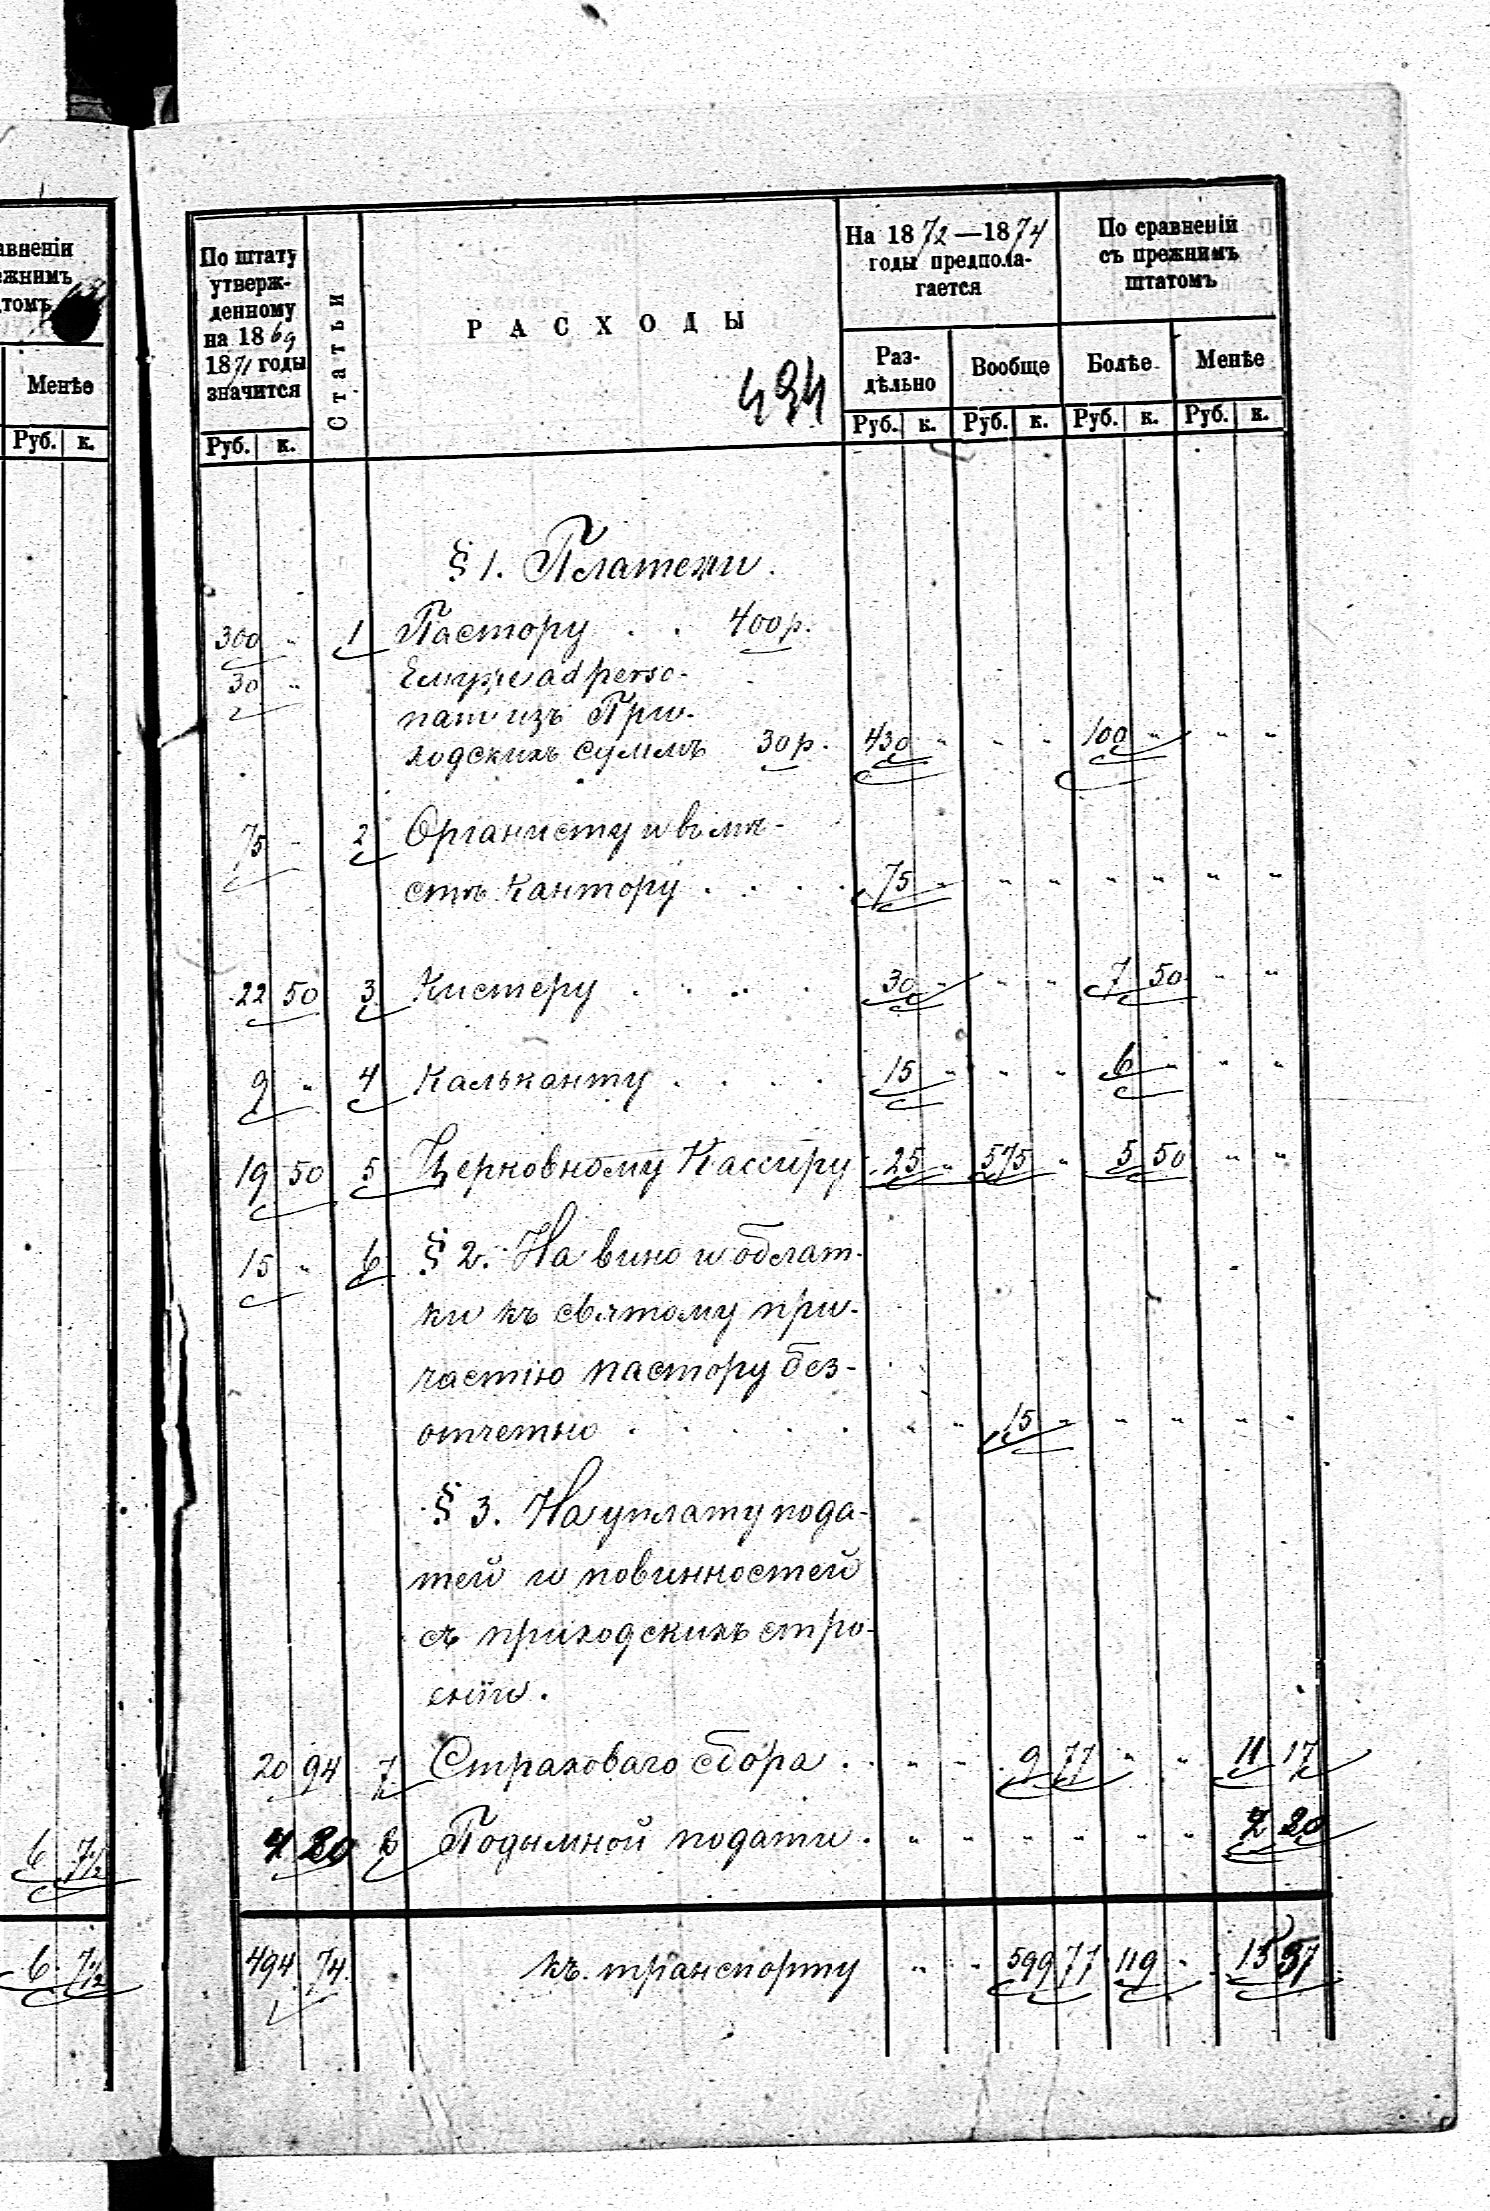 авненіи
ежнимъ
томъ
Менѣе
Руб. к.
6 7½
6 7½
По штату
утверж-
денному
на 1869
1871 годы
значится
Руб. к.
Статьи
РАСХОДЫ
494
На 1872—1874
годы предпола-
гается
Раз-
дѣльно
Вообще
Руб. к. Руб. к.
По сравненій
съ прежнимъ
штатомъ
Болѣе Менѣе
Руб. к. Руб. к.
§ 1. Платежи.
300 " 1 Пастору . . 400 р.
30 " Ему же ad perso-
nam изъ При-
ходскихъ суммъ 30 р. 430 " " " 100 " " "
75 " 2 Органисту и вмѣ-
стѣ Кантору . . . . 75 " " " " " " "
22 50 3 Кистеру . . . . 30 " " " 7 50 " "
9 " 4 Кальканту . . . . 15 " " " 6 " " "
19 50 5 Церковному Кассиру 25 " 575 " 5 50 " "
15 " 6 § 2. На вино и облат-
ки къ святому при-
частію пастору без-
отчетно . . . . . " " 15 " " " " "
§ 3. На уплату пода-
тей и повинностей
съ приходскихъ стро-
еній.
20 94 7 Страховаго сбора . " " 9 77 " " 11 17
4 20 8 Подымной подати . " " " " " " 4 20
494 74 къ транспорту " " 599 77 119 " 15 37